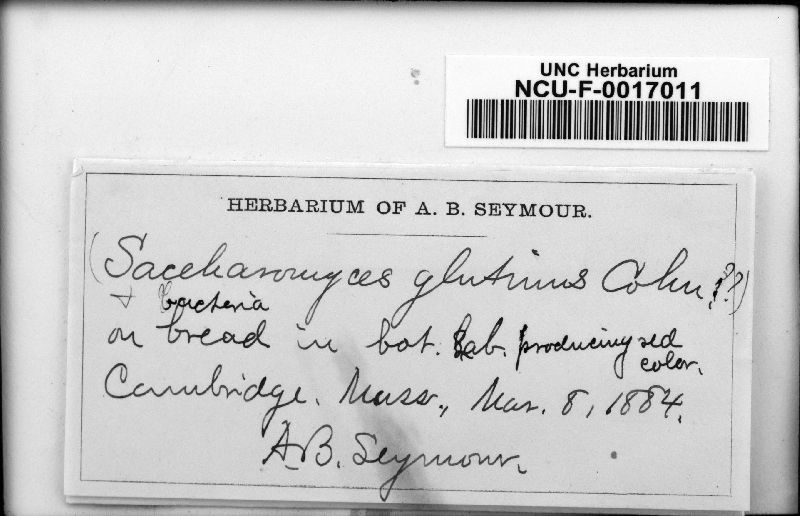 UNC Herbarium
NCU-F-0017011
HERBARIUM OF A. B. SEYMOUR.
(Saccharomyces glutinus Cohn.??)
+ bacteria
on bread in bot. Lab. producing red color.
Cambridge, Mass., Mar. 8, 1884.
A.B. Seymour.